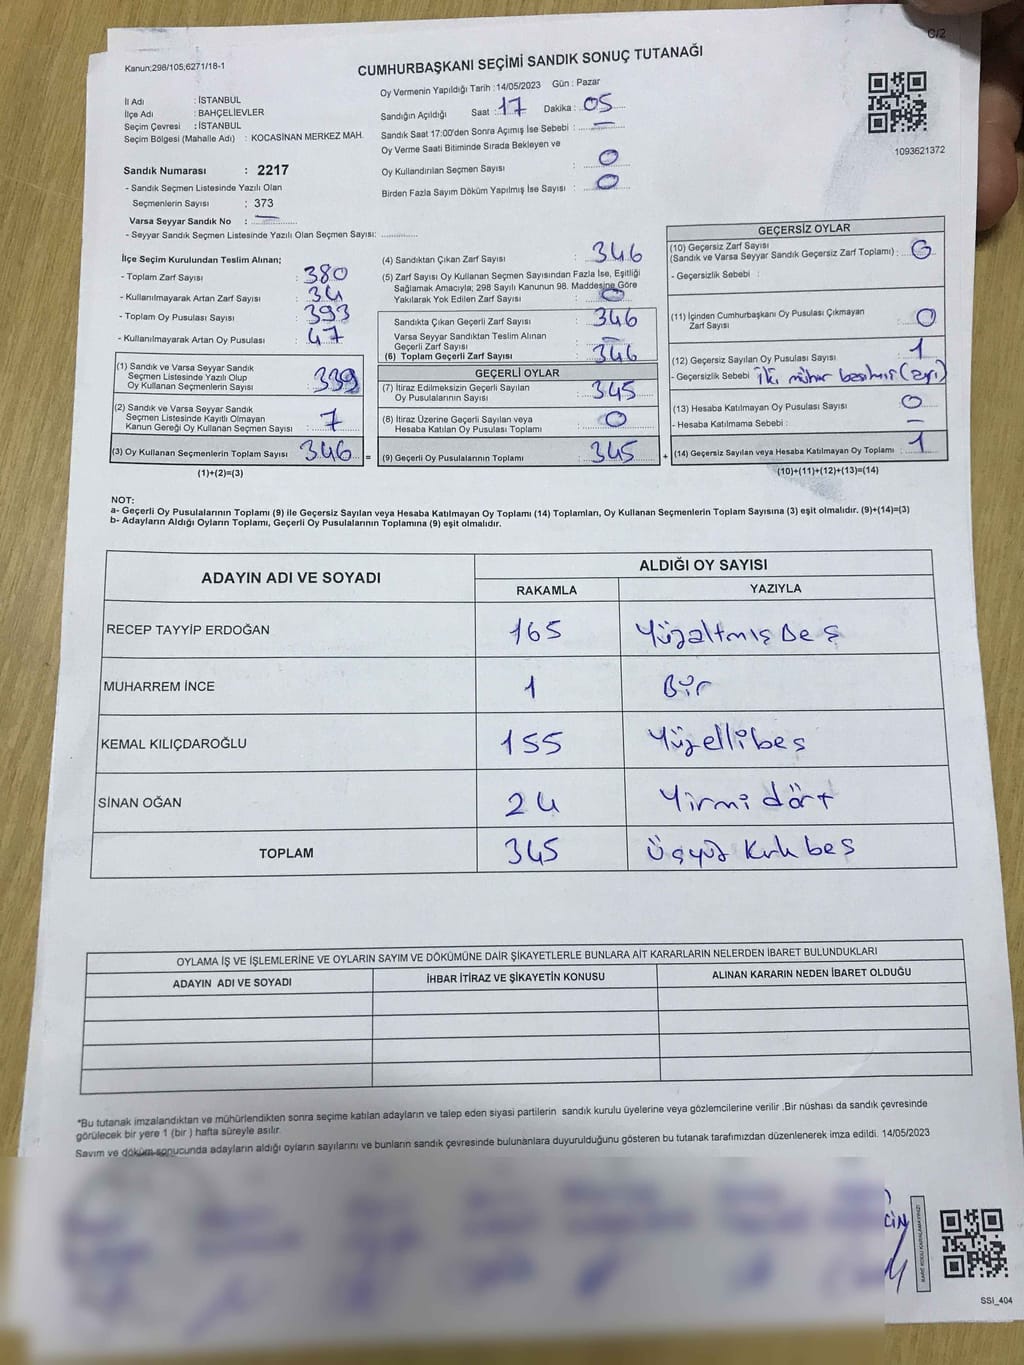 C/2
Kanun;298/105,6271/18-1
CUMHURBAŞKANI SEÇİMİ SANDIK SONUÇ TUTANAĞI
İl Adı : İSTANBUL
İlçe Adı : BAHÇELİEVLER
Seçim Çevresi : İSTANBUL
Seçim Bölgesi (Mahalle Adı) : KOCASİNAN MERKEZ MAH.
Sandık Numarası : 2217
- Sandık Seçmen Listesinde Yazılı Olan
Seçmenlerin Sayısı : 373
Varsa Seyyar Sandık No : —
- Seyyar Sandık Seçmen Listesinde Yazılı Olan Seçmen Sayısı: ..............
Oy Vermenin Yapıldığı Tarih : 14/05/2023 Gün : Pazar
Sandığın Açıldığı Saat : 17 Dakika : 05
Sandık Saat 17:00'den Sonra Açımış İse Sebebi : —
Oy Verme Saati Bitiminde Sırada Bekleyen ve
Oy Kullandırılan Seçmen Sayısı : 0
Birden Fazla Sayım Döküm Yapılmış İse Sayısı : 0
1093621372
İlçe Seçim Kurulundan Teslim Alınan;
- Toplam Zarf Sayısı : 380
- Kullanılmayarak Artan Zarf Sayısı : 34
- Toplam Oy Pusulası Sayısı : 393
- Kullanılmayarak Artan Oy Pusulası : 47
(1) Sandık ve Varsa Seyyar Sandık
Seçmen Listesinde Yazılı Olup
Oy Kullanan Seçmenlerin Sayısı : 339
(2) Sandık ve Varsa Seyyar Sandık
Seçmen Listesinde Kayıtlı Olmayan
Kanun Gereği Oy Kullanan Seçmen Sayısı : 7
(3) Oy Kullanan Seçmenlerin Toplam Sayısı : 346 =
(1)+(2)=(3)
(4) Sandıktan Çıkan Zarf Sayısı : 346
(5) Zarf Sayısı Oy Kullanan Seçmen Sayısından Fazla İse, Eşitliği
Sağlamak Amacıyla; 298 Sayılı Kanunun 98. Maddesine Göre
Yakılarak Yok Edilen Zarf Sayısı : 0
Sandıkta Çıkan Geçerli Zarf Sayısı : 346
Varsa Seyyar Sandıktan Teslim Alınan
Geçerli Zarf Sayısı : —
(6) Toplam Geçerli Zarf Sayısı : 346
GEÇERLİ OYLAR
(7) İtiraz Edilmeksizin Geçerli Sayılan
Oy Pusulalarının Sayısı : 345
(8) İtiraz Üzerine Geçerli Sayılan veya
Hesaba Katılan Oy Pusulası Toplamı : 0
(9) Geçerli Oy Pusulalarının Toplamı : 345 +
GEÇERSİZ OYLAR
(10) Geçersiz Zarf Sayısı
(Sandık ve Varsa Seyyar Sandık Geçersiz Zarf Toplamı) : 0
- Geçersizlik Sebebi :
(11) İçinden Cumhurbaşkanı Oy Pusulası Çıkmayan
Zarf Sayısı : 0
(12) Geçersiz Sayılan Oy Pusulası Sayısı : 1
- Geçersizlik Sebebi iki mühür basılmış
(13) Hesaba Katılmayan Oy Pusulası Sayısı : 0
- Hesaba Katılmama Sebebi : —
(14) Geçersiz Sayılan veya Hesaba Katılmayan Oy Toplamı : 1
(10)+(11)+(12)+(13)=(14)
NOT:
a- Geçerli Oy Pusulalarının Toplamı (9) ile Geçersiz Sayılan veya Hesaba Katılmayan Oy Toplamı (14) Toplamları, Oy Kullanan Seçmenlerin Toplam Sayısına (3) eşit olmalıdır. (9)+(14)=(3)
b- Adayların Aldığı Oyların Toplamı, Geçerli Oy Pusulalarının Toplamına (9) eşit olmalıdır.
ADAYIN ADI VE SOYADI ALDIĞI OY SAYISI
RAKAMLA YAZIYLA
RECEP TAYYİP ERDOĞAN 165 Yüzaltmış Beş
MUHARREM İNCE 1 Bir
KEMAL KILIÇDAROĞLU 155 Yüzellibeş
SİNAN OĞAN 24 Yirmi dört
TOPLAM 345 Üçyüz Kırk beş
OYLAMA İŞ VE İŞLEMLERİNE VE OYLARIN SAYIM VE DÖKÜMÜNE DAİR ŞİKAYETLERLE BUNLARA AİT KARARLARIN NELERDEN İBARET BULUNDUKLARI
ADAYIN ADI VE SOYADI İHBAR İTİRAZ VE ŞİKAYETİN KONUSU ALINAN KARARIN NEDEN İBARET OLDUĞU
*Bu tutanak imzalandıktan ve mühürlendikten sonra seçime katılan adayların ve talep eden siyasi partilerin sandık kurulu üyelerine veya gözlemcilerine verilir .Bir nüshası da sandık çevresinde
görülecek bir yere 1 (bir ) hafta süreyle asılır.
Sayım ve döküm sonucunda adayların aldığı oyların sayılarını ve bunların sandık çevresinde bulunanlara duyurulduğunu gösteren bu tutanak tarafımızdan düzenlenerek imza edildi. 14/05/2023
SSI_404